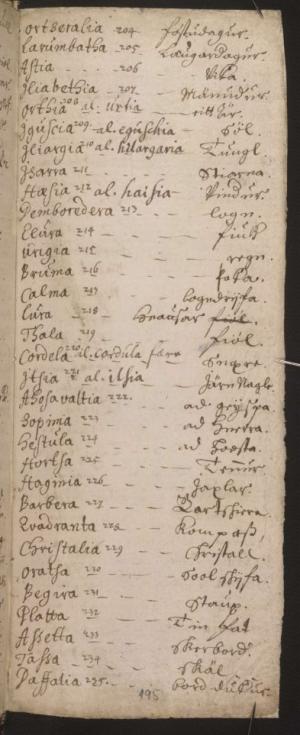 ortzeralia 204. fostudagur.
Larumbatha 205. Laugardagur.
Astia - - - 206 - Vika.
Jliabethia - 207. - Mánudur.
Orthia 208 al. Urtia - eitt Jár.
Jgúscia 209. al. eguschia - Sól.
Jliargia 210 al. hilargaria Tungl.
Jsarra 211 - - - Stiarna.
Hæsia 212 al. haisia - Vindur.
Demboredera 213 - - - logn.
Elúra 214 - - - fiuk
Urigia 215 - - - regn.
Brúma 216 - - - þoka.
Calma 217 - - - logndrÿfa.
Lúra - 218 -
Thala 219 - - - fiól.
Cordela 220 al. cordula fava Snære.
Jtsia 221 al. ilsia Járn Nagle.
222. ad geÿspa
Bopima 223 - - ad hnerra.
Hestula 224 - - ad hoesta.
Hortsa 225 - - Tenúr
Haginia 226 - - Jaxlar.
Barbera 227 - -
Evadranta 228 - - Kompaß.
Christalia 229 - - Christall.
Oratsa 230 - - Soolskÿfa.
Begira 231 - - Staup.
Platta 232 - - Tin fat
Assetta 233 - - Skerbord.
Tassa - 234 - - skál
Daffalia 235. - - bord dukur
195